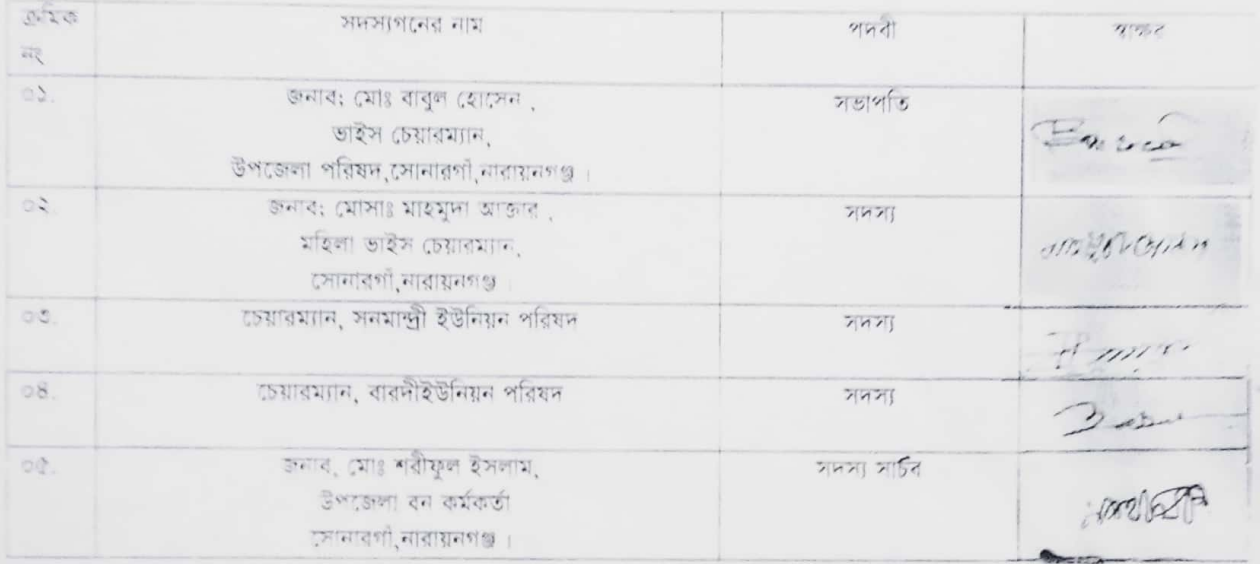 ক্রমিক নং সদস্যগনের নাম পদবী স্বাক্ষর
০১. জনাব: মোঃ বাবুল হোসেন , সভাপতি
ভাইস চেয়ারম্যান,
উপজেলা পরিষদ,সোনারগাঁ,নারায়নগঞ্জ ।
০২. জনাব: মোসাঃ মাহমুদা আক্তার , সদস্য
মহিলা ভাইস চেয়ারম্যান,
সোনারগাঁ,নারায়নগঞ্জ ।
০৩. চেয়ারম্যান, সনমান্দ্রী ইউনিয়ন পরিষদ সদস্য
০৪. চেয়ারম্যান, বারদীইউনিয়ন পরিষদ সদস্য
০৫. জনাব, মোঃ শরীফুল ইসলাম, সদস্য সচিব
উপজেলা বন কর্মকর্তা
সোনারগাঁ,নারায়নগঞ্জ ।